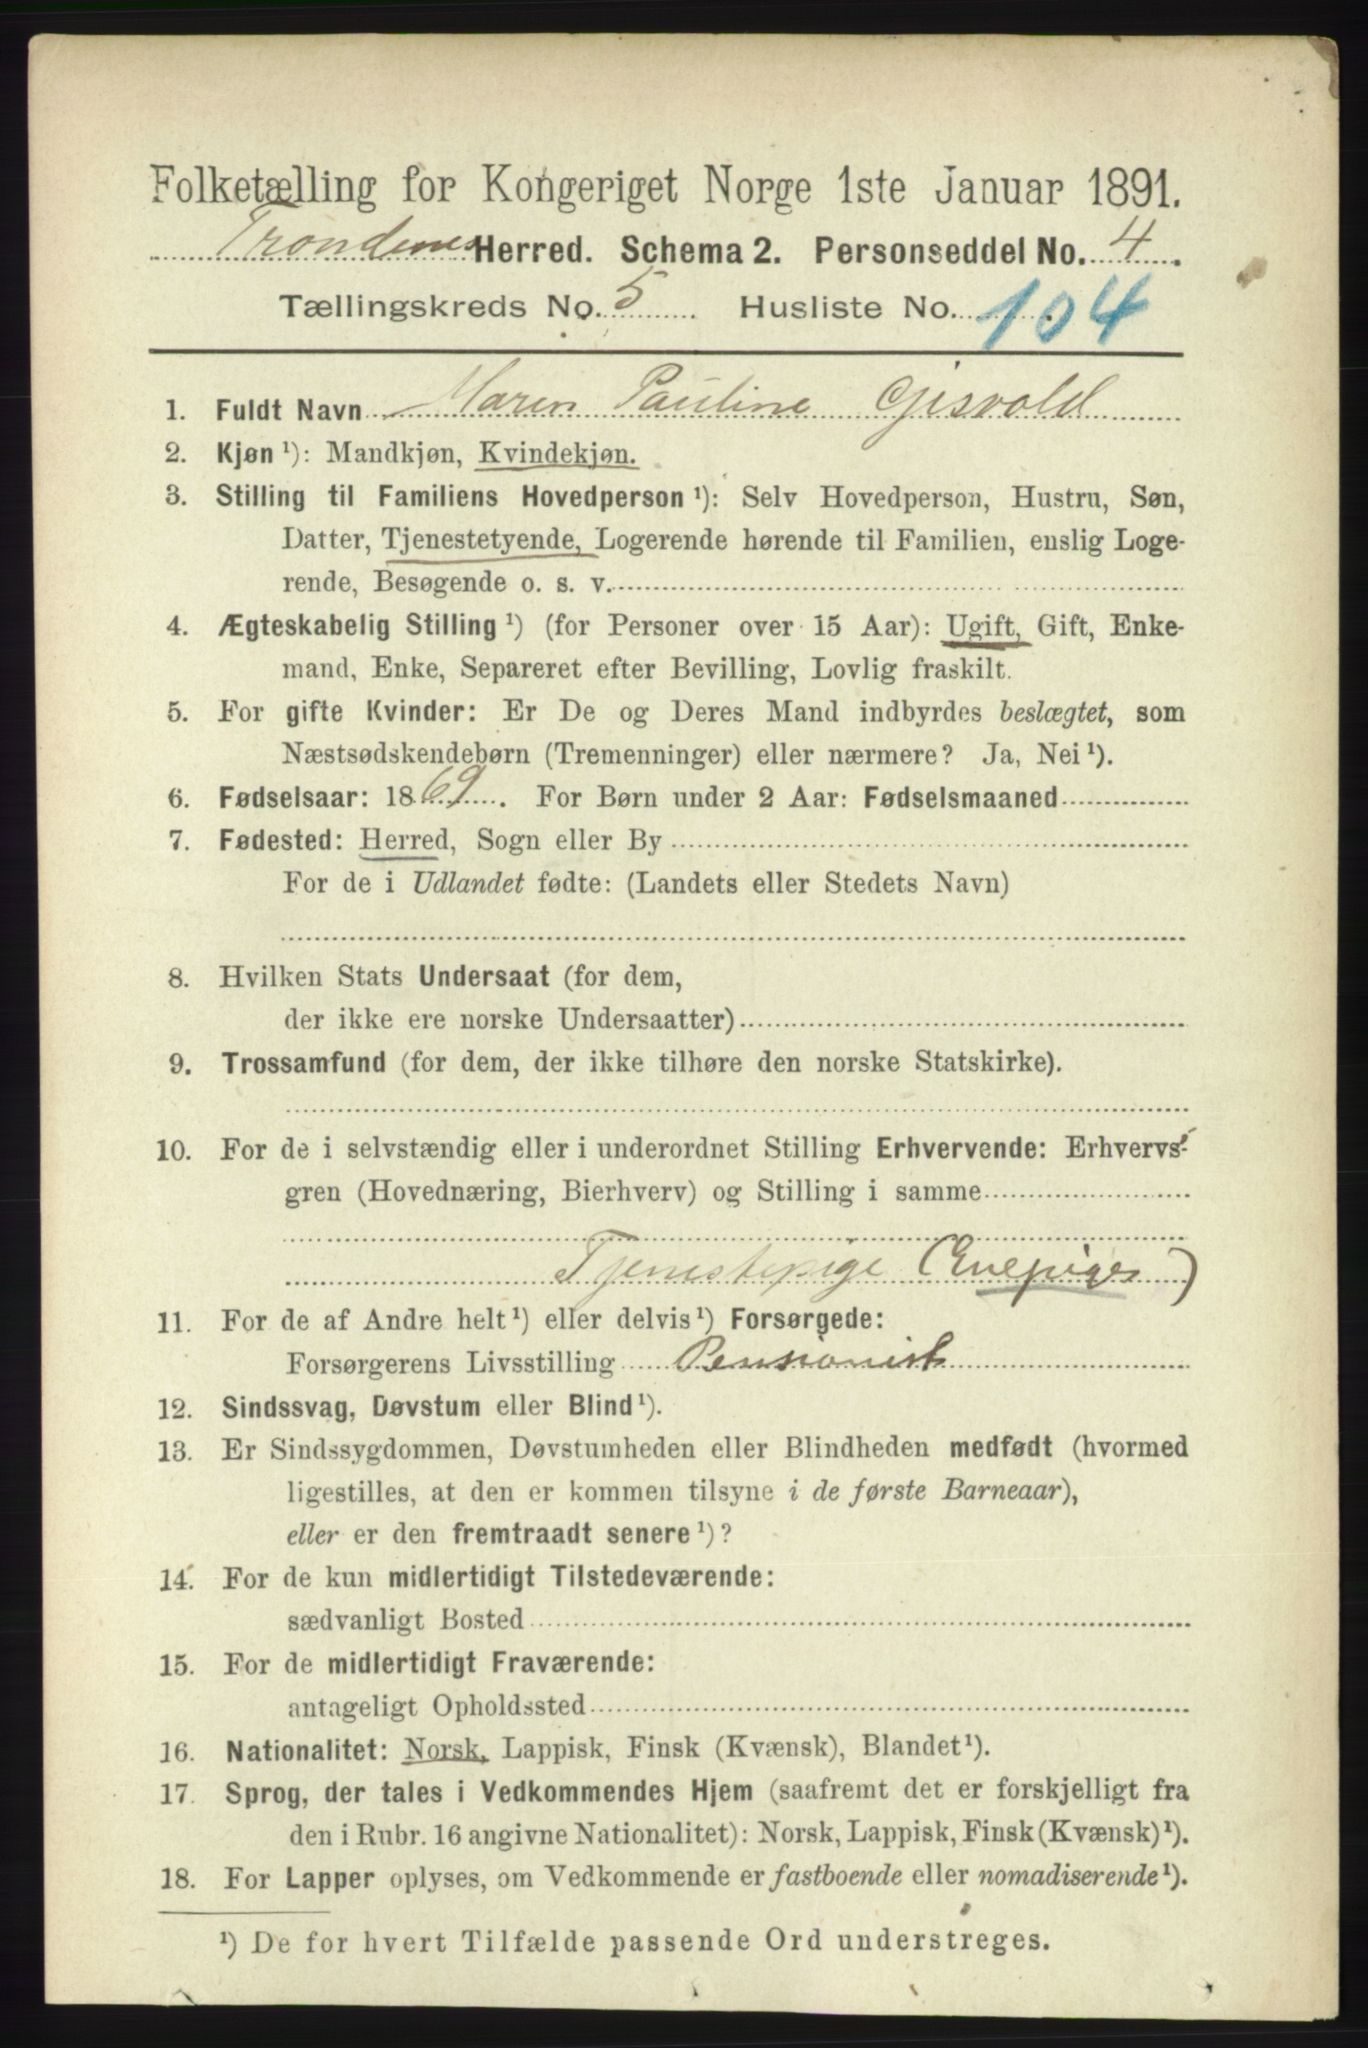 Folketælling for Kongeriget Norge 1ste Januar 1891.
Trondenes Herred. Schema 2. Personseddel No. 4.
Tællingskreds No. 5 Husliste No. 104
1. Fuldt Navn Maren Pauline Gisvold
2. Kjøn ¹): Mandkjøn, Kvindekjøn.
3. Stilling til Familiens Hovedperson ¹): Selv Hovedperson, Hustru, Søn,
Datter, Tjenestetyende, Logerende hørende til Familien, enslig Loge-
rende, Besøgende o. s. v.
4. Ægteskabelig Stilling ¹) (for Personer over 15 Aar): Ugift, Gift, Enke-
mand, Enke, Separeret efter Bevilling, Lovlig fraskilt.
5. For gifte Kvinder: Er De og Deres Mand indbyrdes beslægtet, som
Næstsødskendebørn (Tremenninger) eller nærmere? Ja, Nei ¹).
6. Fødselsaar: 1869. For Børn under 2 Aar: Fødselsmaaned
7. Fødested: Herred, Sogn eller By
For de i Udlandet fødte: (Landets eller Stedets Navn)
8. Hvilken Stats Undersaat (for dem,
der ikke ere norske Undersaatter)
9. Trossamfund (for dem, der ikke tilhøre den norske Statskirke).
10. For de i selvstændig eller i underordnet Stilling Erhvervende: Erhvervs-
gren (Hovednæring, Bierhverv) og Stilling i samme
Tjenestepige (Enepige)
11. For de af Andre helt ¹) eller delvis ¹) Forsørgede:
Forsørgerens Livsstilling Pensionist
12. Sindssvag, Døvstum eller Blind ¹).
13. Er Sindssygdommen, Døvstumheden eller Blindheden medfødt (hvormed
ligestilles, at den er kommen tilsyne i de første Barneaar),
eller er den fremtraadt senere ¹)?
14. For de kun midlertidigt Tilstedeværende:
sædvanligt Bosted
15. For de midlertidigt Fraværende:
antageligt Opholdssted
16. Nationalitet: Norsk, Lappisk, Finsk (Kvænsk), Blandet ¹).
17. Sprog, der tales i Vedkommendes Hjem (saafremt det er forskjelligt fra
den i Rubr. 16 angivne Nationalitet): Norsk, Lappisk, Finsk (Kvænsk) ¹).
18. For Lapper oplyses, om Vedkommende er fastboende eller nomadiserende ¹).
¹) De for hvert Tilfælde passende Ord understreges.